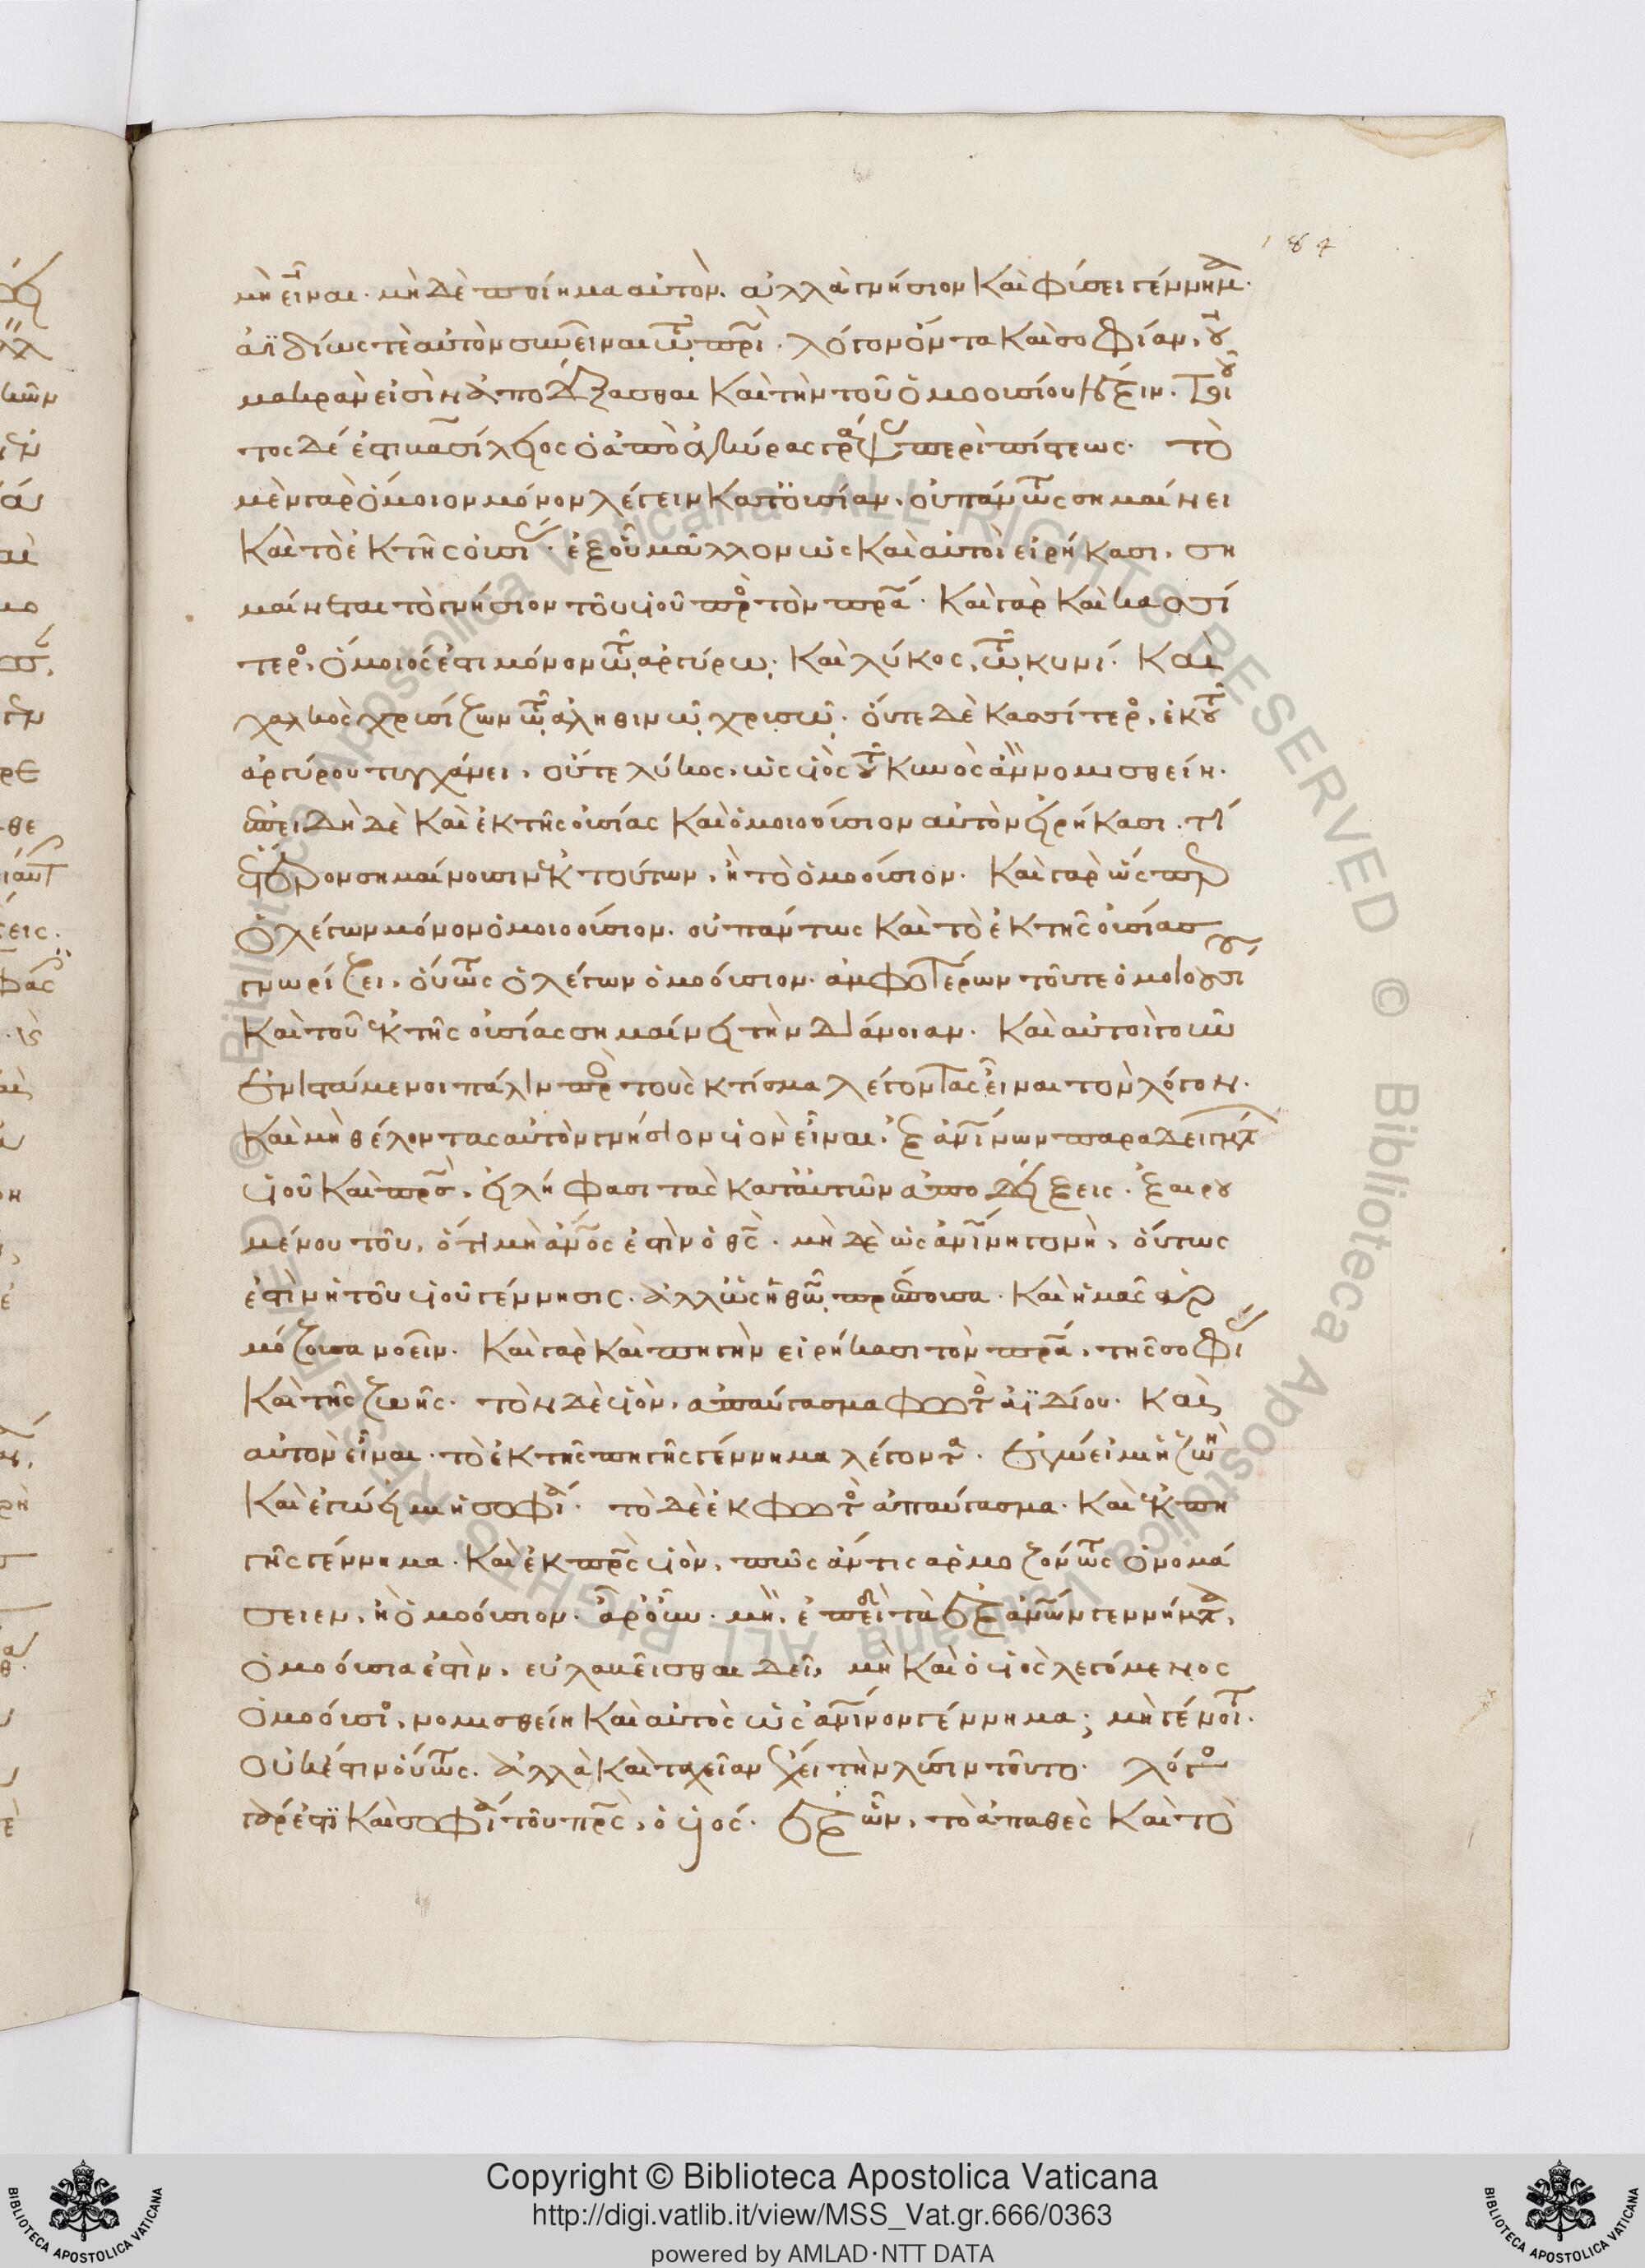 184
μὴ εἶναι. μὴ δὲ ποίημα αὐτὸν. ἀλλὰ γνήσιον καὶ φύσει γέννημα.
ἀϊδίως τὲ αὐτὸν συνεῖναι τῶ πρὶ. λόγον ὄντα καὶ σοφίαν, οὐ
μακρὰν εἰσὶν ἀποδέξασθαι καὶ τὴν τοῦ ὁμοουσίου λέξιν. τοιοῦ
τος δέ ἐστι βασίλειος ὁ ἀπὸ ἀγκύρας γράψας περὶ πίστεως. τὸ
μὲν γὰρ ὅμοιον μόνον λέγειν κατ' οὐσίαν, οὐ πάντως σημαίνει
καὶ τὸ ἐκ τῆς οὐσίας. ἐξ οὗ μᾶλλον ὡς καὶ αὐτοὶ εἰρήκασι, ση
μαίνεται τὸ γνήσιον τοῦ υἱοῦ πρὸς τὸν πρα. καὶ γὰρ καὶ κασσί
τερος, ὅμοιός ἐστι μόνον τῶ ἀργύρω. καὶ λύκος, τῶ κυνί. καὶ
χαλκὸς χρυσίζων τῶ ἀληθινῶ χρυσῶ. οὔτε δὲ κασσίτερος, ἐκ τοῦ
ἀργύρου τυγχάνει, οὔτε λύκος, ὡς υἱὸς τοῦ κυνὸς ἂν νομισθείη.
ἐπειδὴ δὲ καὶ ἐκ τῆς οὐσίας καὶ ὁμοιοούσιον αὐτὸν εἰρήκασι. τί
ἕτερον σημαίνουσιν ἐκ τούτων, ἢ τὸ ὁμοούσιον. καὶ γὰρ ὥσπερ
ὁ λέγων μόνον ὁμοιοούσιον. οὐ πάντως καὶ τὸ ἐκ τῆς οὐσίας
γνωρίζει, οὕτως ὁ λέγων ὁμοούσιον. ἀμφοτέρων τοῦ τε ὁμοιοουσίου
καὶ τοῦ ἐκ τῆς οὐσίας σημαίνει τὴν διάνοιαν. καὶ αὐτοὶ γοῦν
ἐνιστάμενοι πάλιν πρὸς τοὺς κτίσμα λέγοντας εἶναι τὸν λόγον.
καὶ μὴ θέλοντας αὐτὸν γνήσιον υἱὸν εἶναι. ἐξ ἀνίνων παραδειγμάτων
υἱοῦ καὶ πρσ, εἰλήφασι τὰς κατ' αὐτῶν ἀποδείξεις. ἐξαιρου
μένου τοῦ, ὅτι μὴ ἀνος ἐστὶν ὁ θς. μὴ δὲ ὡς ἀνίνη γονὴ, οὕτως
ἐστὶν ἡ τοῦ υἱοῦ γέννησις. ἀλλ' ὡς ἡ θῶ πρέπουσα. καὶ ἡμᾶς ἁρ
μόζουσα νοεῖν. καὶ γὰρ καὶ πηγὴν εἰρήκασι τὸν πρα, τῆς σοφίας
καὶ τῆς ζωῆς. τὸν δὲ υἱὸν, ἀπαύγασμα φωτὸς ἀϊδίου. καὶ
αὐτὸν εἶναι. τὸ ἐκ τῆς πηγῆς γέννημα λέγοντα. ἐγώ εἰμι ἡ ζωὴ
καὶ ἐγώ εἰμι ἡ σοφία. τὸ δὲ ἐκ φωτὸς ἀπαύγασμα. καὶ ἐκ πη
γῆς γέννημα. καὶ ἐκ πρς υἱὸν, πῶς ἄν τις ἁρμοζόντως ὀνομά
σειεν, ἢ ὁμοούσιον. ἆρ' οὖν. μὴ, ἐπειδὴ τὰ ἐξ ἀνων γεννήματα,
ὁμοούσια ἐστὶν, εὐλαβεῖσθαι δεῖ, μὴ καὶ ὁ υἱὸς λεγόμενος
ὁμοούσιος, νομισθείη καὶ αὐτὸς ὡς ἀνινον γέννημα; μὴ γένοιτο.
οὐκ ἔστιν οὕτως. ἀλλὰ καὶ ταχεῖαν ἔχει τὴν λύσιν τοῦτο. λόγος
γάρ ἐστι καὶ σοφία τοῦ πρς, ὁ υἱός. ἐξ ὧν, τὸ ἀπαθὲς καὶ τὸ
Copyright © Biblioteca Apostolica Vaticana
http://digi.vatlib.it/view/MSS_Vat.gr.666/0363
powered by AMLAD·NTT DATA